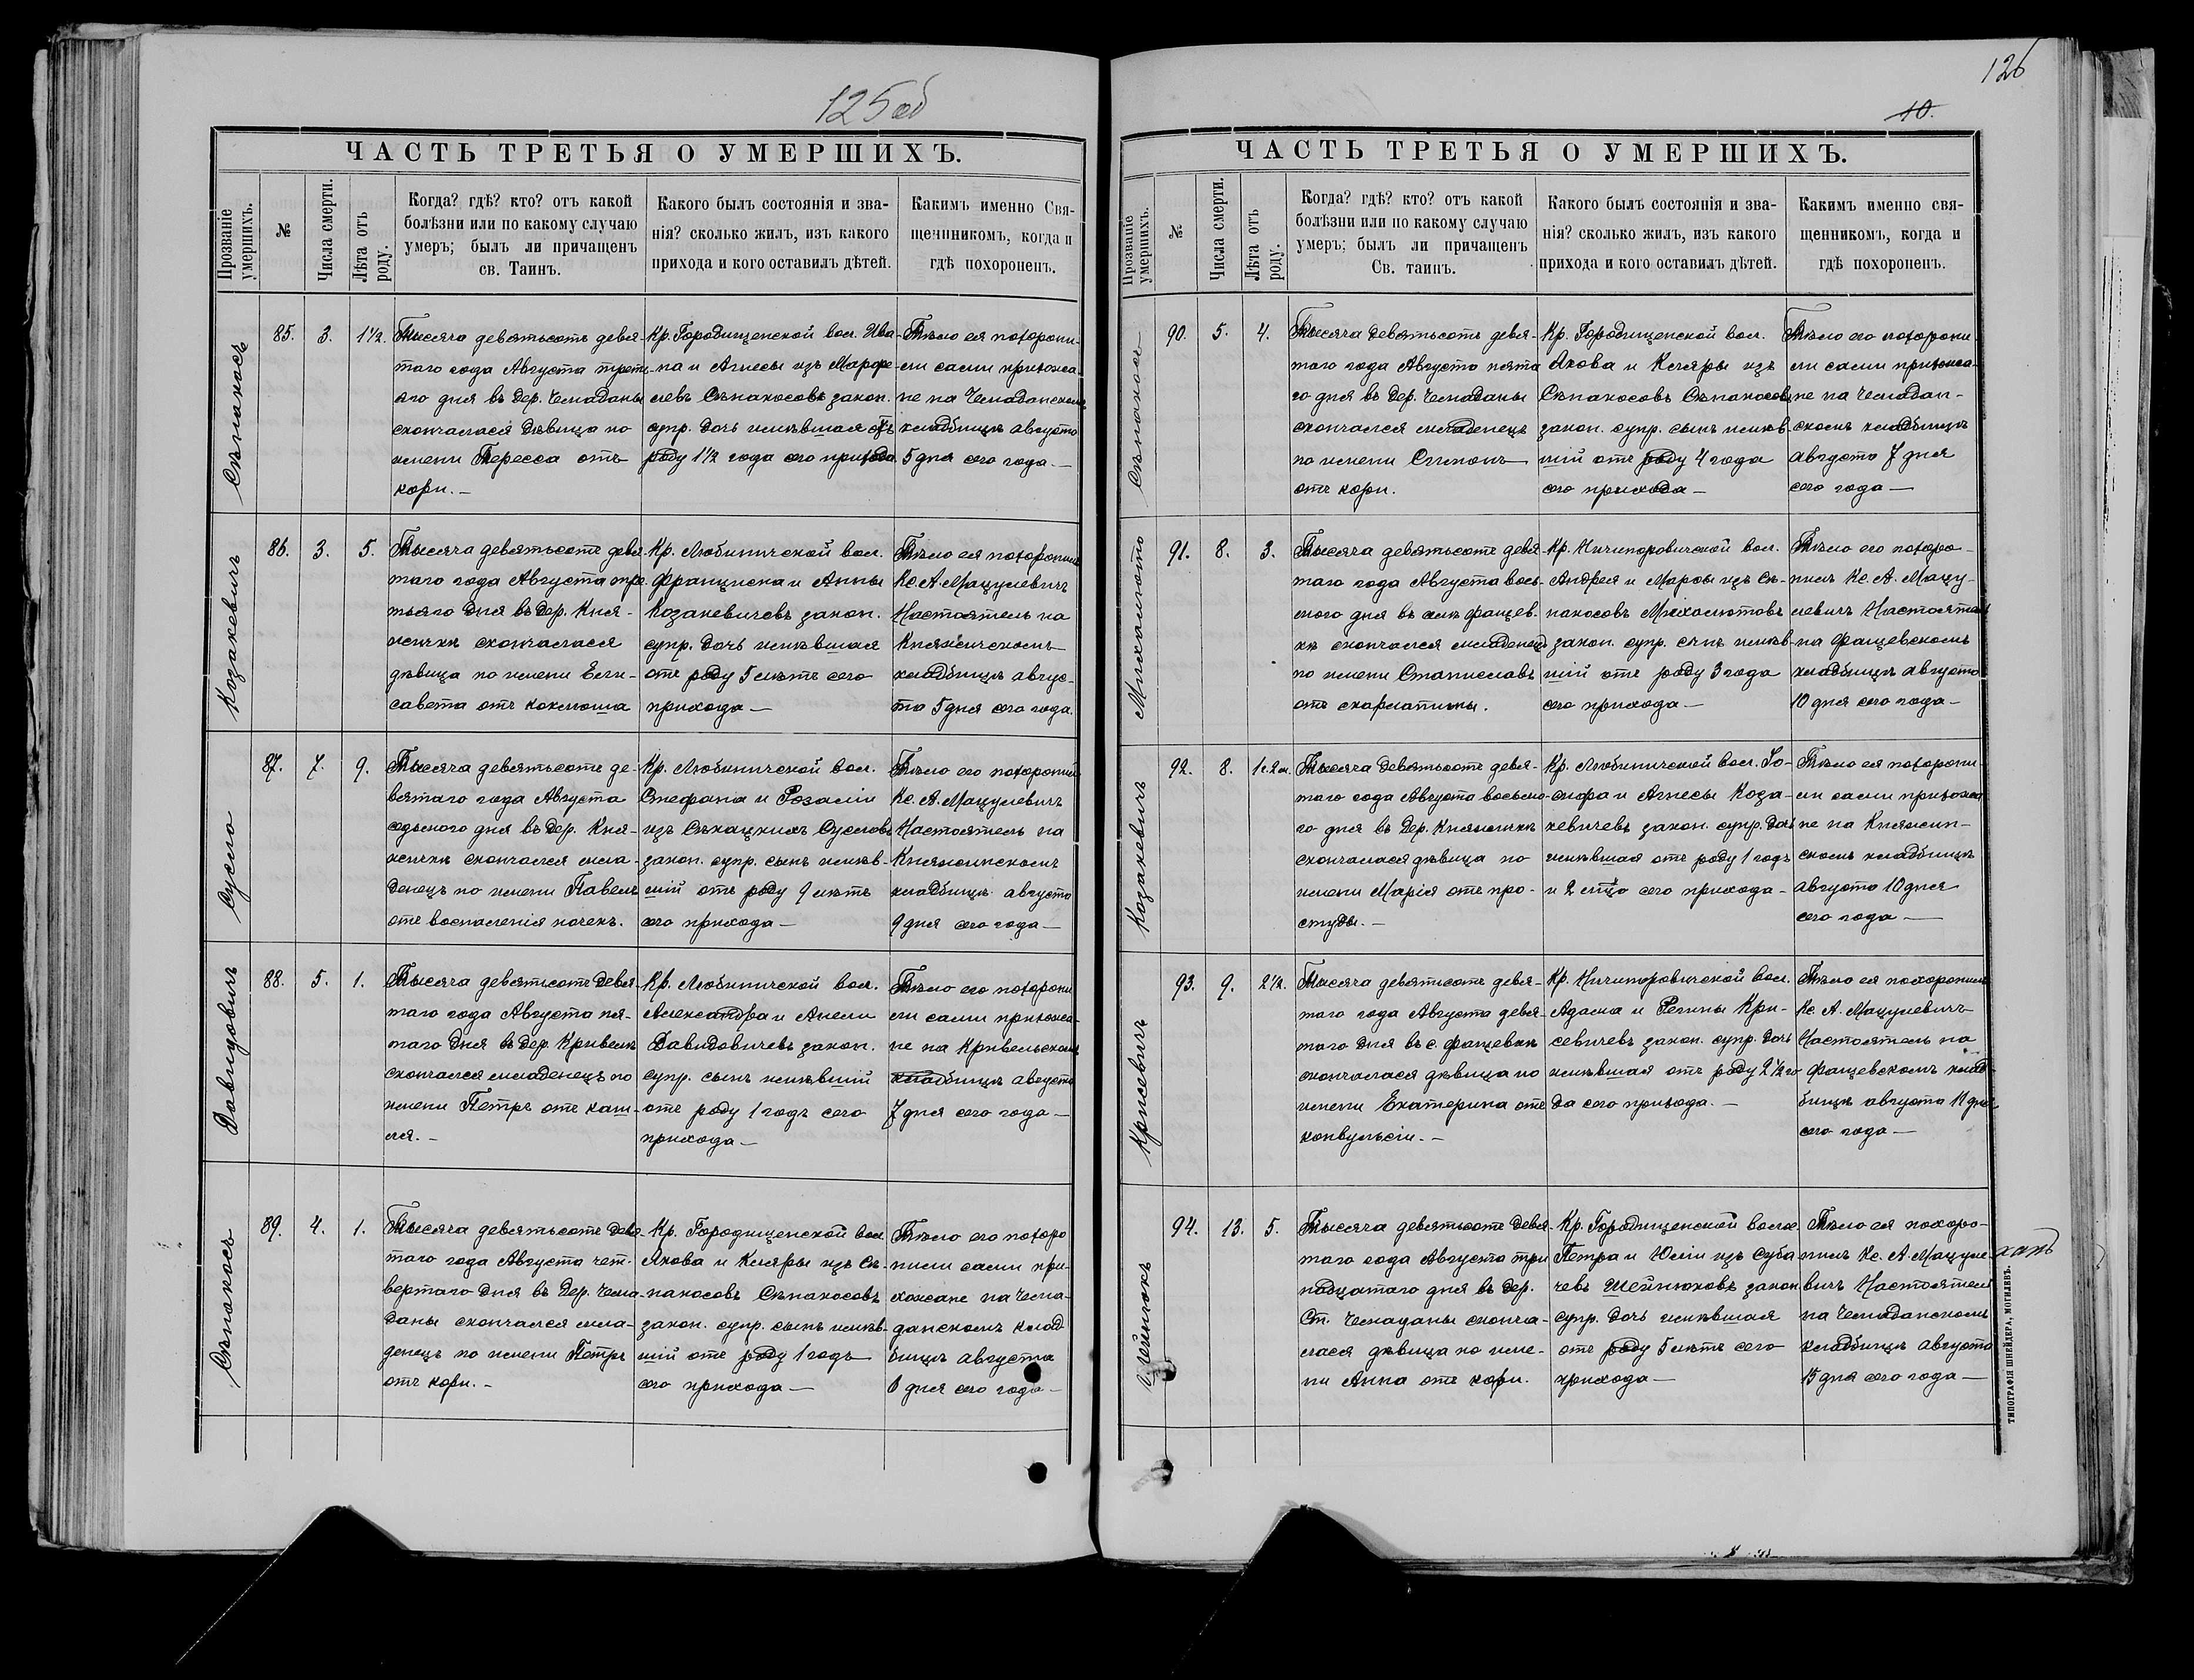 125 об
ЧАСТЬ ТРЕТЬЯ О УМЕРШИХЪ.
Прозваніе умершихъ.
№
Числа смерти.
Лѣта отъ роду.
Когда? гдѣ? кто? отъ какой
болѣзни или по какому случаю
умеръ; былъ ли причащенъ
св. Таинъ.
Какого былъ состоянія и зва-
нія? сколько жилъ, изъ какого
прихода и кого оставилъ дѣтей.
Какимъ именно Свя-
щенникомъ, когда и
гдѣ похороненъ.
Сѣнокосъ
85.
3.
1½.
Тысяча девятьсотъ девя-
таго года Августа треть-
яго дня въ дер. Чемоданы
скончалася дѣвица по
имени Тересса отъ
кори.-
Кр. Городищенской вол. Ива-
на и Агнесы изъ
Сѣнокосовъ закон.
супр. дочь имѣвшая отъ
роду 1½ года сего прихода
Тѣло ея похорони-
ли сами прихожа-
не на Чемоданскомъ
кладбищѣ августа
5 дня сего года.-
Козакевичъ
86.
3.
5.
Тысяча девятьсотъ девя-
таго года Августа тре-
тьяго дня въ дер. Кня-
жичѣ скончалася
дѣвица по имени Ели-
савета отъ коклюша
Кр. Любиничской вол.
Франциска и Анны
Козакевичевъ закон.
супр. дочь имѣвшая
отъ роду 5 лѣтъ сего
прихода-
Тѣло ея похоронилъ
Кс. А. Мацулевичъ
Настоятель на
Княжичскомъ
кладбищѣ авгус-
та 5 дня сего года.
Сусло
87.
7.
9.
Тысяча девятьсотъ де-
вятаго года Августа
седьмого дня въ дер. Кня-
жичѣ скончался мла-
денецъ по имени Павелъ
отъ воспаленія почекъ.
Кр. Любиничской вол.
Стефана и Розаліи
изъ Сѣкацкихъ Сусловъ
закон. супр. сынъ имѣв-
шій отъ роду 9 лѣтъ
сего прихода-
Тѣло его похоронилъ
Кс. А. Мацулевичъ
Настоятель на
Княжинскомъ
кладбищѣ августа
9 дня сего года-
Давидовичъ
88.
5.
1.
Тысяча девятьсотъ девя-
таго года Августа пя-
таго дня въ дер. Кривелѣ
скончался младенецъ по
имени Петръ отъ каш-
ля.-
Кр. Любиничской вол.
Александра и Анели
Давидовичевъ закон.
супр. сынъ имѣвшій
отъ роду 1 годъ сего
прихода-
Тѣло его похорони
ли сами прихожа-
не на Кривельскомъ
кладбищѣ августа
7 дня сего года-
Сѣнокосъ
89.
4.
1.
Тысяча девятьсотъ девя-
таго года Августа чет-
вертаго дня въ дер. Чемо-
даны скончался мла-
денецъ по имени Петръ
отъ кори.-
Кр. Городищенской вол.
Якова и Кляры изъ Сѣ-
нокосовъ Сѣнокосовъ
закон. супр. сынъ имѣв-
шій отъ роду 1 годъ
сего прихода-
Тѣло его похоро
нили сами при-
хожане на Чемо-
данскомъ клад
бищѣ августа
6 дня сего года-
126
10.
ЧАСТЬ ТРЕТЬЯ О УМЕРШИХЪ.
Прозваніе умершихъ.
№
Числа смерти.
Лѣта отъ роду.
Когда? гдѣ? кто? отъ какой
болѣзни или по какому случаю
умеръ; былъ ли причащенъ
Св. таинъ.
Какого былъ состоянія и зва-
нія? сколько жилъ, изъ какого
прихода и кого оставилъ дѣтей.
Какимъ именно свя-
щенникомъ, когда и
гдѣ похороненъ.
Сѣнокосъ
90.
5.
4.
Тысяча девятьсотъ девя-
таго года Августа пята
го дня въ дер. Чемоданы
скончался младенецъ
по имени Симонъ
отъ кори.
Кр. Городищенской вол.
Якова и Кляры изъ
Сѣнокосовъ Сѣнокосовъ
закон. супр. сынъ имѣв-
шій отъ роду 4 года
сего прихода-
Тѣло его похорони-
ли сами прихожа-
не на Чемодан-
скомъ кладбищѣ
августа 7 дня
сего года-
Михолюто
91.
8.
3.
Тысяча девятьсотъ девя
таго года Августа вось-
мого дня въ имѣ Фащев-
кѣ скончался младенецъ
по имени Станиславъ
отъ скарлатины.
Кр. Ничипоровичской вол.
Андрея и Марфы изъ Сѣ-
нокосовъ Михолютовъ
закон. супр. сынъ имѣв-
шій отъ роду 3 года
сего прихода-
Тѣло его похоро-
нилъ Кс. А. Мацу-
левичъ Настоятель
на Фащевскомъ
кладбищѣ августа
10 дня сего года-
Козакевичъ
92.
8.
1г.2м.
Тысяча девятьсотъ девя-
таго года Августа восьмо-
го дня въ дер. Княжичѣ
скончалася дѣвица по
имени Марія отъ про-
студы.-
Кр. Любиничской вол. Іо-
сифа и Агнесы Коза-
кевичевъ закон. супр. дочь
имѣвшая отъ роду 1 годъ
и 2 мца сего прихода-
Тѣло ея похорони-
ли сами прихожа
не на Княжин-
скомъ кладбищѣ
августа 10 дня
сего года-
Крисевичъ
93.
9.
2½.
Тысяча девятьсотъ девя-
таго года Августа девя-
таго дня въ с. Фащевкѣ
скончалася дѣвица по
имени Екатерина отъ
конвульсіи.-
Кр. Ничипоровичской вол.
Адама и Регины Кри-
севичевъ закон. супр. дочь
имѣвшая отъ роду 2½ го
да сего прихода.-
Тѣло ея похоронилъ
Кс. А. Мацулевичъ
Настоятель на
Фащевскомъ клад-
бищѣ августа 11 дня
сего года-
Шейнюкъ
94.
13.
5.
Тысяча девятьсотъ девя-
таго года Августа три
надцатаго дня въ дер.
Ст. Чемоданы сконча-
лася дѣвица по име-
ни Анна отъ кори.
Кр. Городищенской волос.
Петра и Юліи изъ Суба
чевъ Шейнюковъ закон
супр. дочь имѣвшая
отъ роду 5 лѣтъ сего
прихода-
Тѣло ея похоро-
нилъ Кс. А. Мацуле-
вичъ Настоятель
на Чемоданскомъ
кладбищѣ августа
15 дня сего года-
ТИПОГРАФІЯ ШНЕЙДЕРА, МОГИЛЕВЪ.